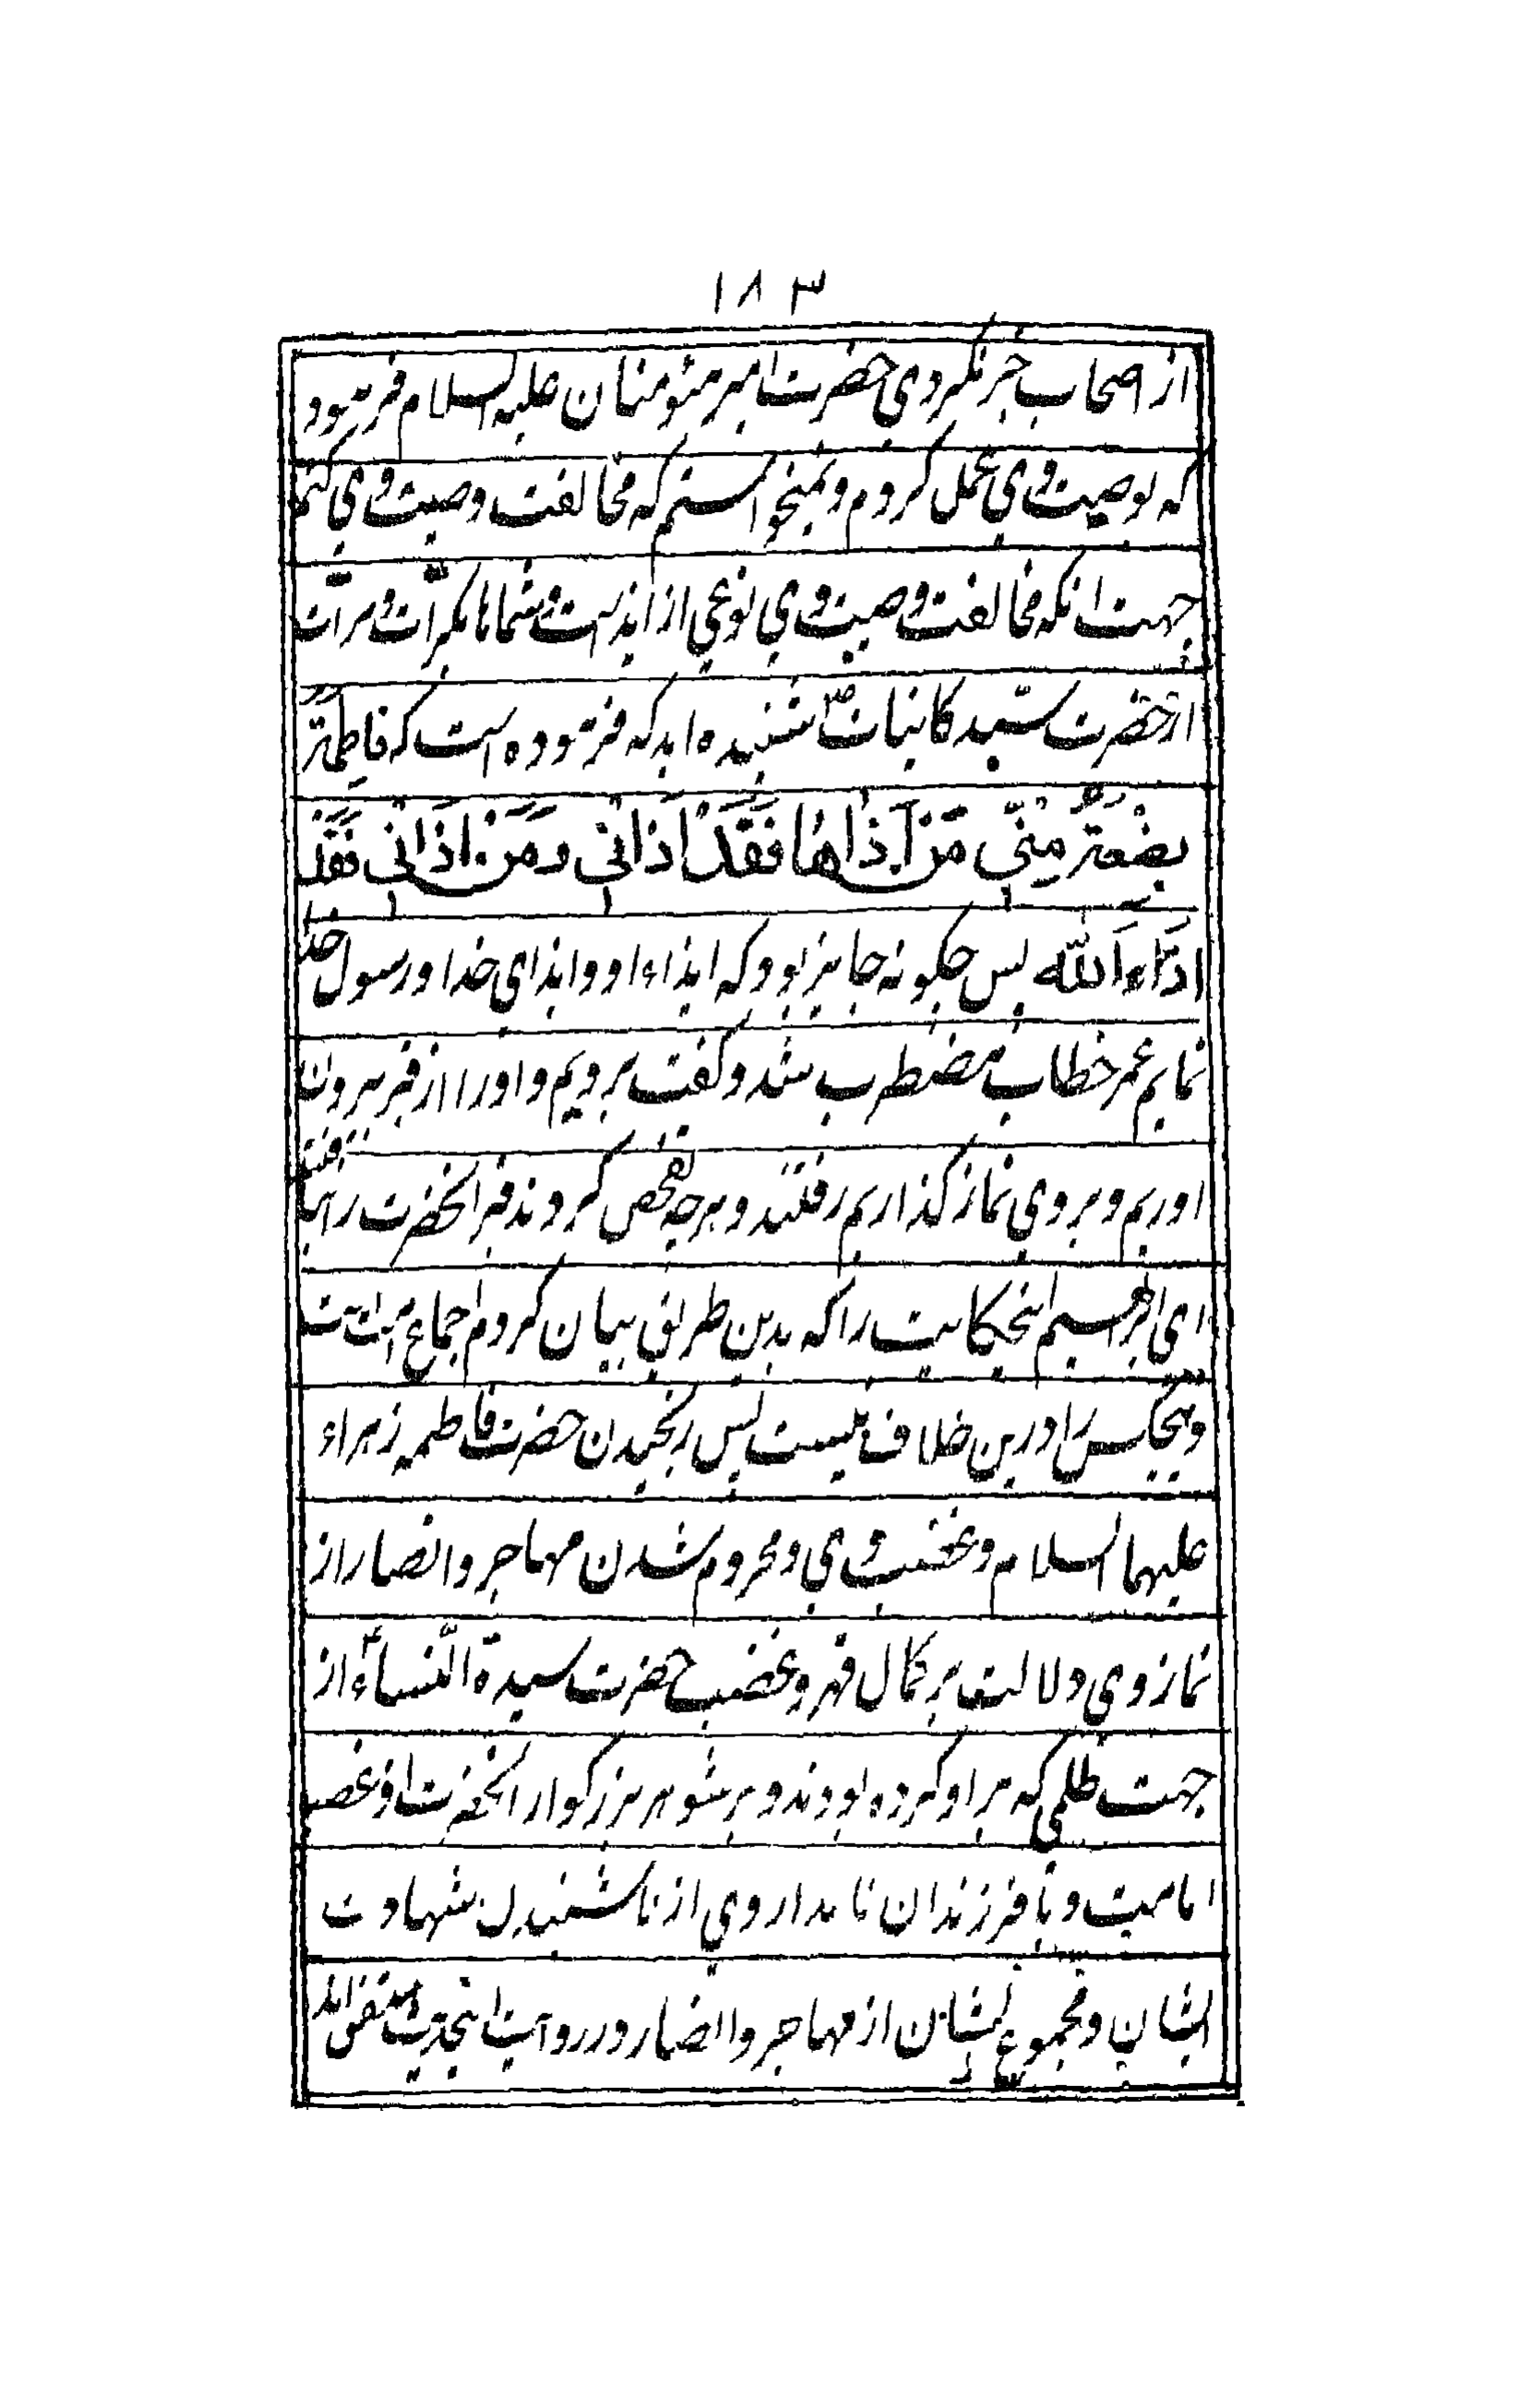 ۱۸۳
از اصحاب خبر نکردی حضرت امیر مئومنان علیه السلام فرمود
که بوصیت وی عمل کردم و نمیخواستم که مخالفت وصیت وی کنم
جهت انکه مخالفت وصیت وی نوعی از ایذاست و شماها بکرّات و مرّات
از حضرت سیّد کاینات ص شنیده اید که فرموده است که فاطِمَةُ
بِضْعَةٌ مِنّی مَنْ آذاها فَقَدْ اذَانی وَمَنْ اذَانی فَقَدْ
اذَاءَ اللّه پس چکونه جایز بود که ایذاء او و ایذای خدا و رسول خدا
نمایم عمر خطاب مضطرب شد و کفت برویم و او را از قبر بیرون
اوریم و بر وی نماز کذاریم رفتند و هرچه تفحص کردند قبر انحضرت را نیافتند
ای ابراهیم اینحکایت را که بدین طریق بیان کردم اجماع امت است
و هیچکس را درین خلاف نیست پس رنجیدن حضرت فاطمه زهراء
علیهما السلام و غضب وی و محروم شدن مهاجر و انصار از
نماز وی دلالت بر کمال قهر و غضب حضرت سیدة النساء از
جهت ظلمی که بر او کرده بودند و بر شوهر بزرکوار انحضرت از غصب
امامت و با فرزندان نامدار وی از ناشنیدن شهادت
ایشان و مجموع ایشان از مهاجر و انصار در روایت اینحدیث متفق اند